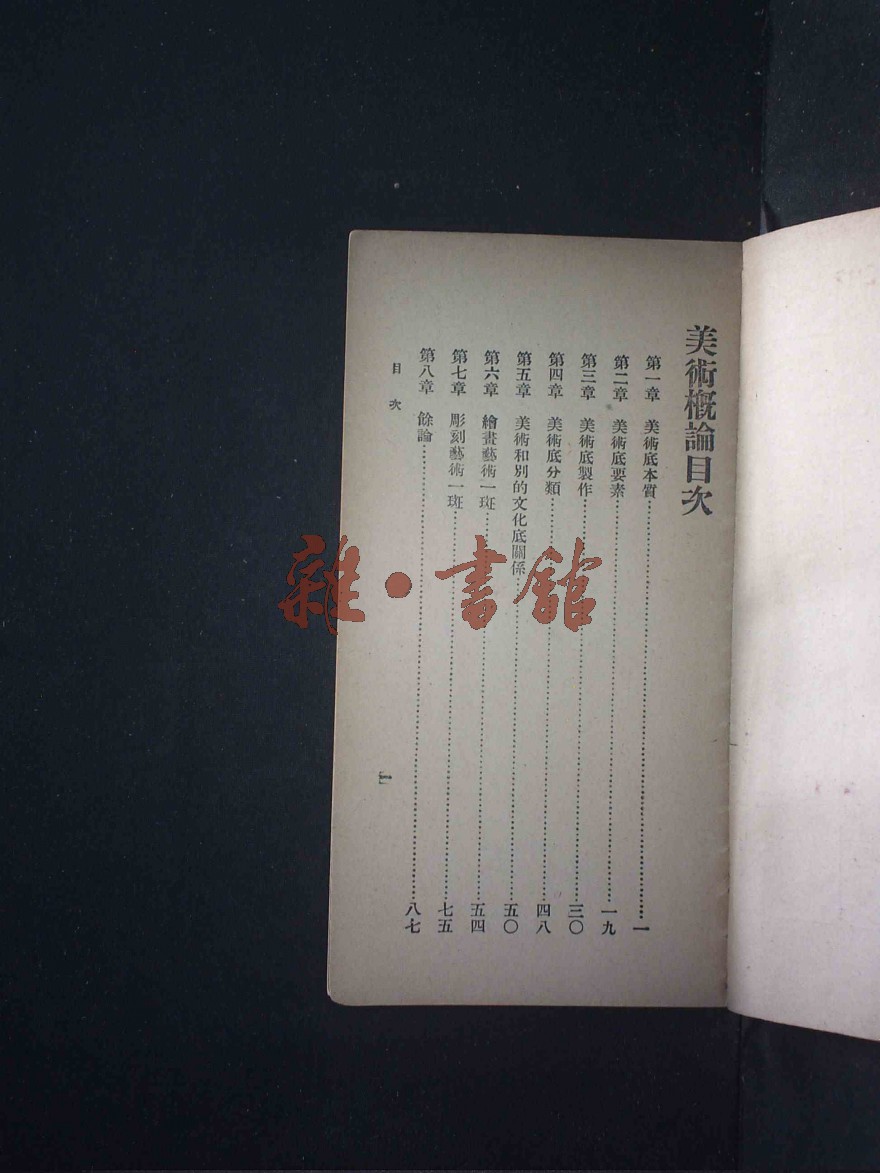 美術概論目次
第一章 美術底本質……一
第二章 美術底要素……一九
第三章 美術底製作……三〇
第四章 美術底分類……四八
第五章 美術和別的文化底關係……五〇
第六章 繪畫藝術一斑……五四
第七章 彫刻藝術一斑……七五
第八章 餘論……八七
目次
一
雜·書館